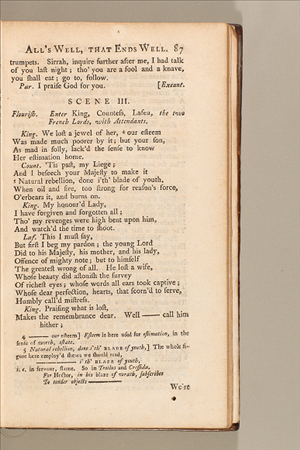 ALL'S WELL, THAT ENDS WELL. 87
trumpets. Sirrah, inquire further after me, I had talk
of you last night; tho' you are a fool and a knave,
you shall eat; go to, follow.
Par. I praise God for you. [Exeunt.
SCENE III.
Flourish. Enter King, Countess, Lafeu, the two
French Lords, with Attendants.
King. We lost a jewel of her, 4 our esteem
Was made much poorer by it; but your son,
As mad in folly, lack'd the sense to know
Her estimation home.
Count. 'Tis past, my Liege;
And I beseech your Majesty to make it
5 Natural rebellion, done i'th' blade of youth,
When oil and fire, too strong for reason's force,
O'erbears it, and burns on.
King. My honour'd Lady,
I have forgiven and forgotten all;
Tho' my revenges were high bent upon him,
And watch'd the time to shoot.
Laf. This I must say,
But first I beg my pardon; the young Lord
Did to his Majesty, his mother, and his lady,
Offence of mighty note; but to himself
The greatest wrong of all. He lost a wife,
Whose beauty did astonish the survey
Of richest eyes; whose words all ears took captive;
Whose dear perfection, hearts, that scorn'd to serve,
Humbly call'd mistress.
King. Praising what is lost,
Makes the remembrance dear. Well —— call him
hither;
4 —— our esteem] Esteem is here used for estimation, in the
sense of worth, estate.
5 Natural rebellion, done i'th' BLADE of youth,] The whole figure
here employ'd shews we should read,
—— i'th' BLAZE of youth,
i. e. in fervour, . So in Troilus and Cressida.
For Hector, in his blaze of wrath, subscribes
To tender objects ——
We're